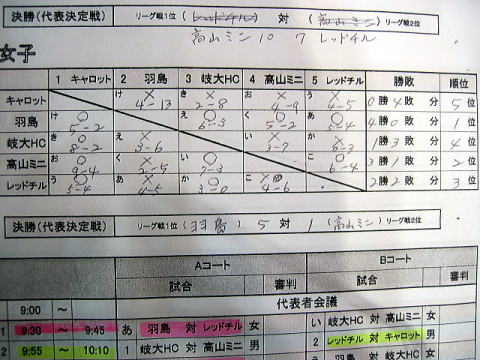 決勝(代表決定戦) リーグ戦1位 (レッドチル) 対 (高山ミニ) リーグ戦2位
高山ミニ 10 7 レッドチル
女子
1 キャロット 2 羽島 3 岐大HC 4 高山ミニ 5 レッドチル 勝敗 順位
キャロット け × 4-13 き × 2-8 お × 4-9 う × 4-5 0勝4敗 分 5位
羽島 け ○ 5-2 ○ 6-3 く ○ 5-2 あ ○ 5-4 4勝0敗 分 1位
岐大HC き ○ 8-2 え × 3-6 い × 3-7 か × 6-3 1勝3敗 分 4位
高山ミニ お ○ 9-4 く × 2-5 い ○ 7-3 こ ○ 6-4 3勝1敗 分 2位
レッドチル う ○ 5-4 あ × 4-5 か ○ 3-0 こ × 4-6 2勝2敗 分 3位
決勝(代表決定戦) リーグ戦1位 (羽島) 5 対 1 (高山ミニ) リーグ戦2位
Aコート Bコート
試合 審判 試合 審判
9:00 ~ 代表者会議
1 9:30 ~ 9:45 あ 羽島 対 レッドチル 女 い 岐大HC 対 高山ミニ 女
2 9:55 ~ 10:10 1 岐大HC 対 高山ミニ 男 2 レッドチル 対 キャロット 男